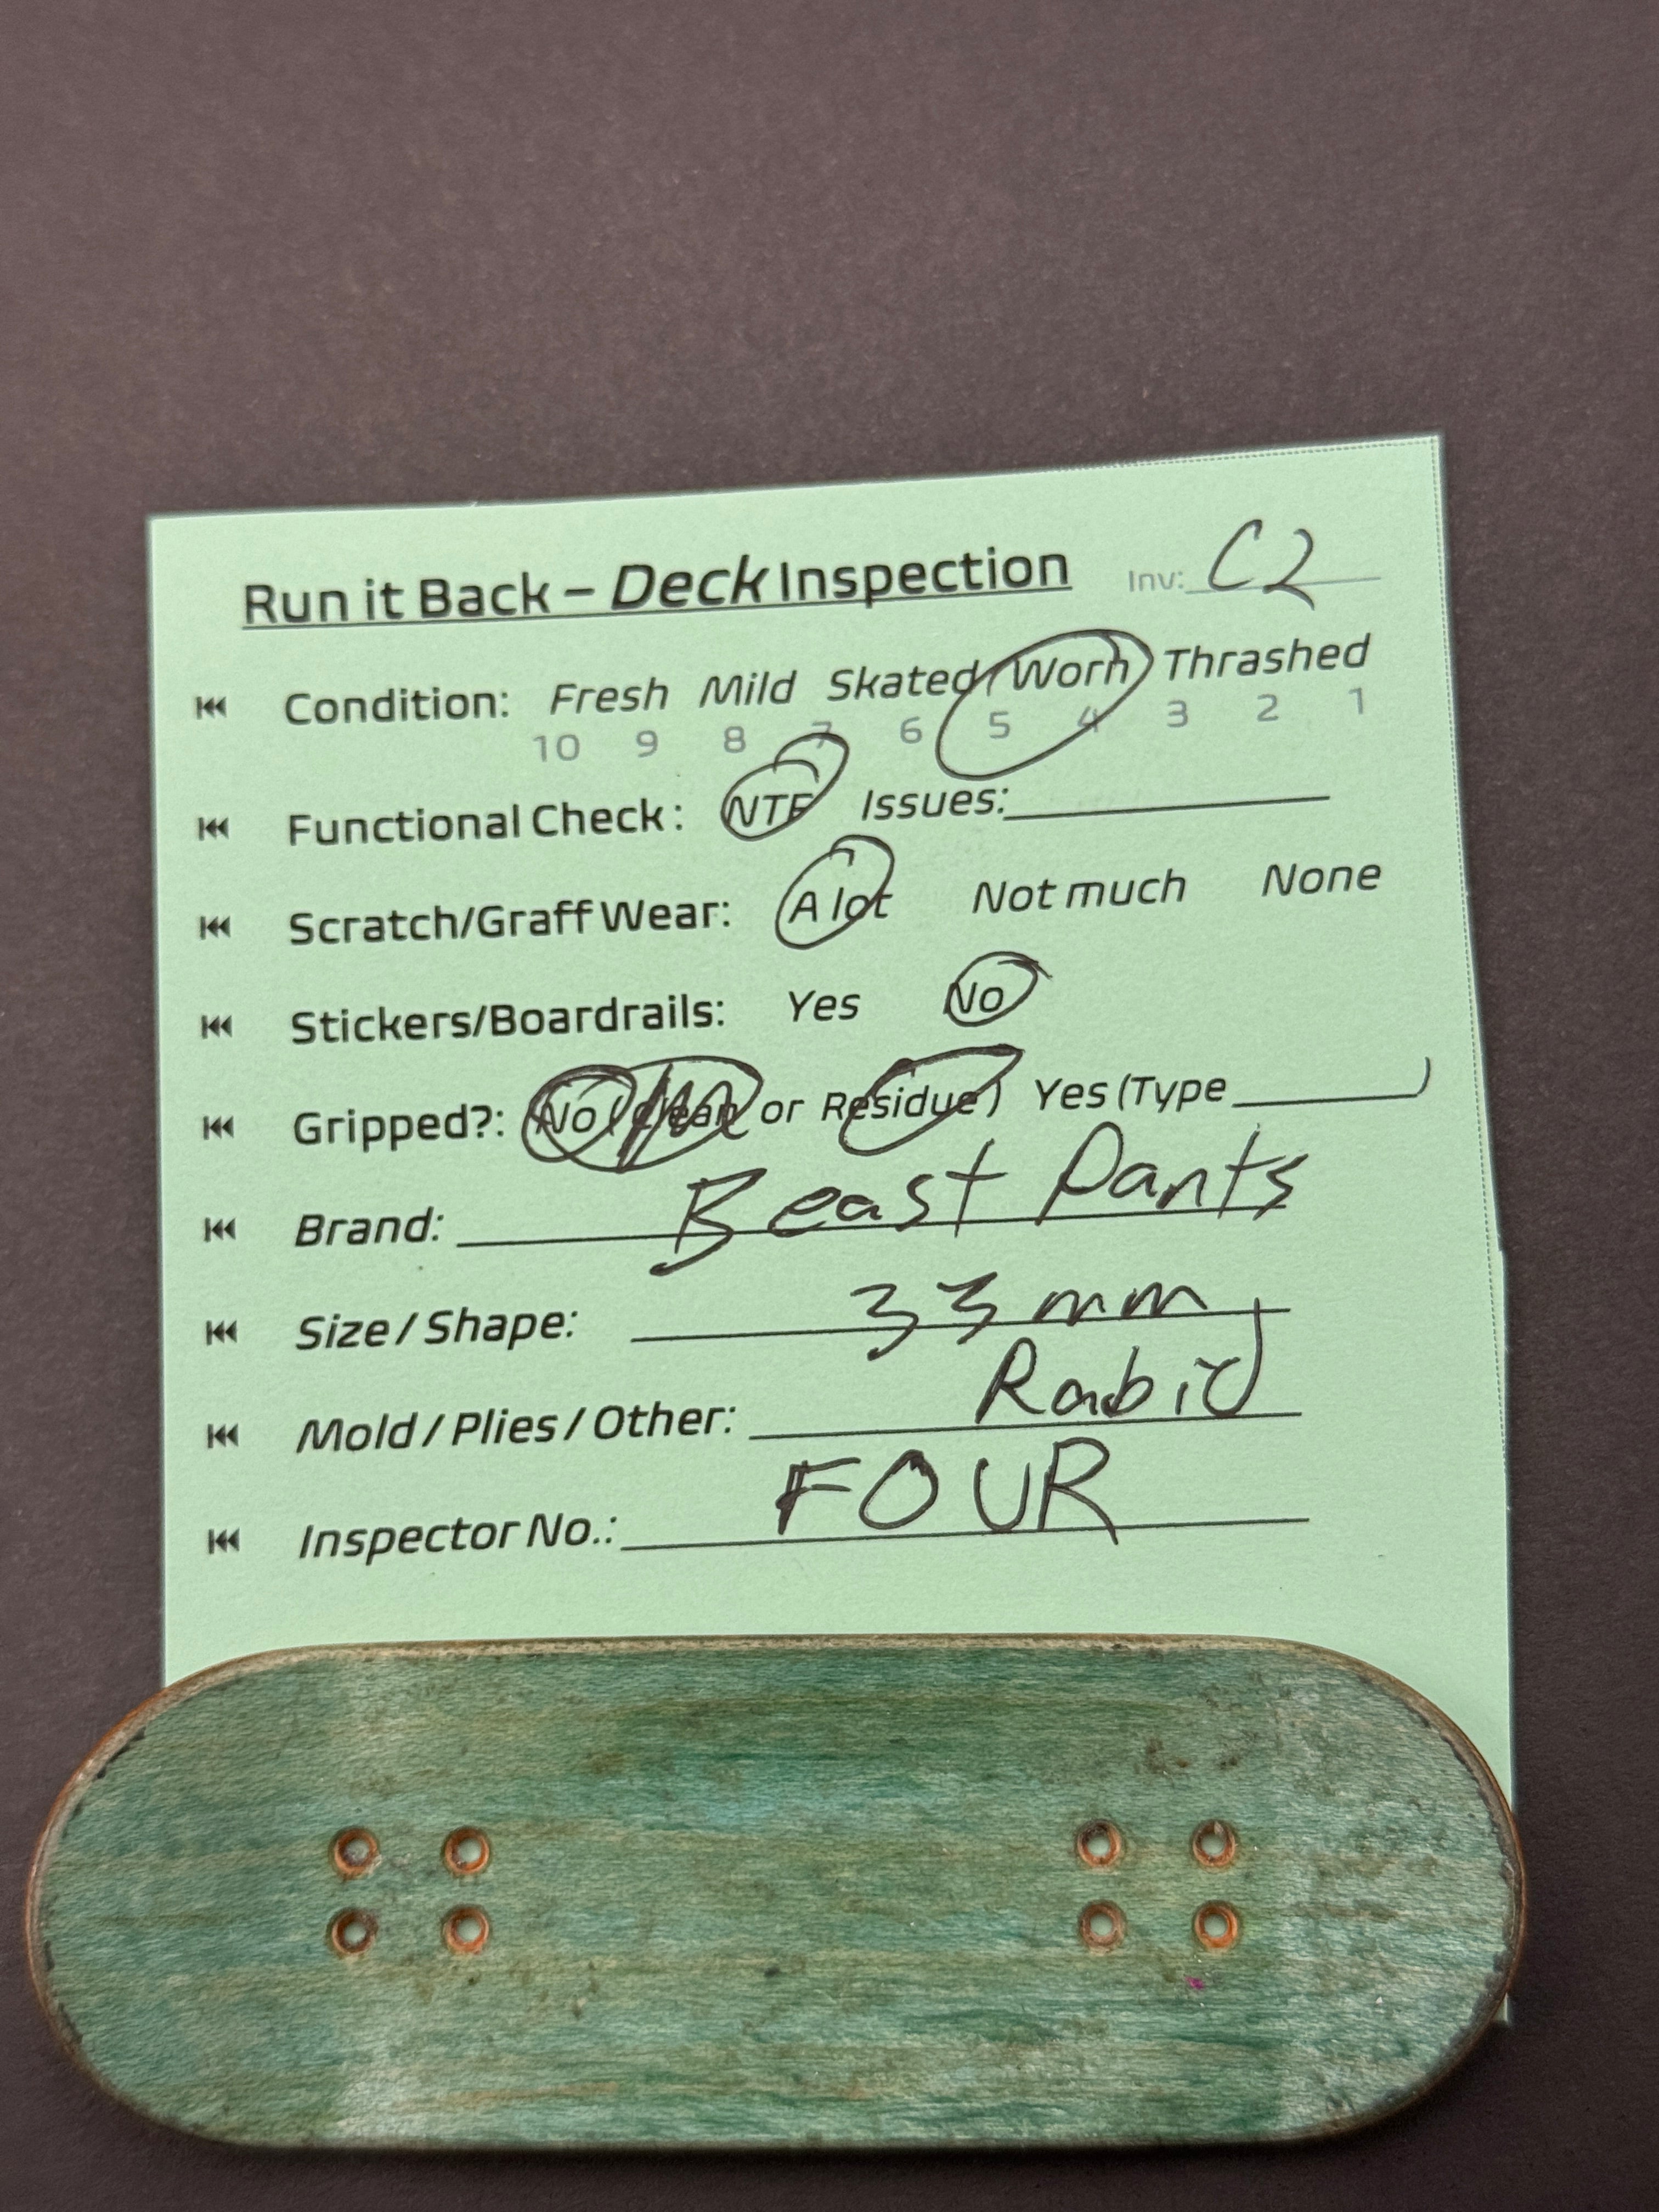 Run it Back – Deck Inspection Inv: C2
Condition: Fresh Mild Skated Worn Thrashed
10 9 8 7 6 5 4 3 2 1
Functional Check: NTF Issues:
Scratch/Graff Wear: A lot Not much None
Stickers/Boardrails: Yes No
Gripped?: No (Clean or Residue) Yes (Type )
Brand: Beast Pants
Size / Shape: 33mm
Mold / Plies / Other: Rabid
Inspector No.: FOUR